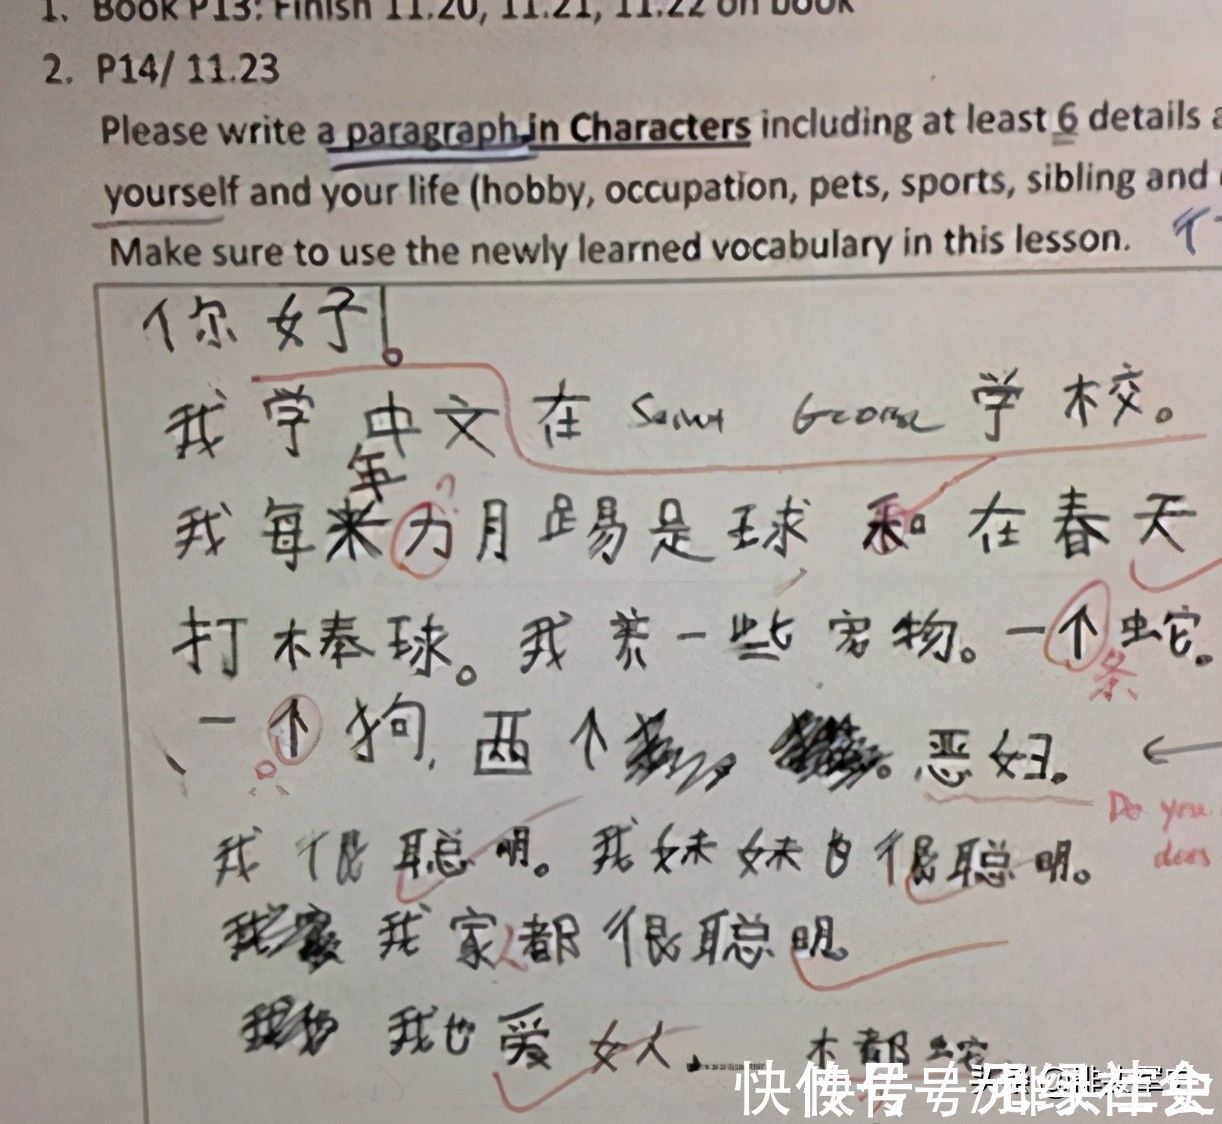 1. Book P13: Finish 11.20, 11.21, 11.22 on book
2. P14/ 11.23
Please write a paragraph in Characters including at least 6 details
yourself and your life (hobby, occupation, pets, sports, sibling and
Make sure to use the newly learned vocabulary in this lesson.
个
你好!
我学中文在 Saint George 学校。
年 ?
我每来力月踢是球和在春天
打棒球。我养一些宠物。一个蛇。
条
一个狗,两个 恶妇。
Do you
我很聪明。我妹妹也很聪明。
我家人都很聪明。
我也爱女人. 木都蛇
快传号/